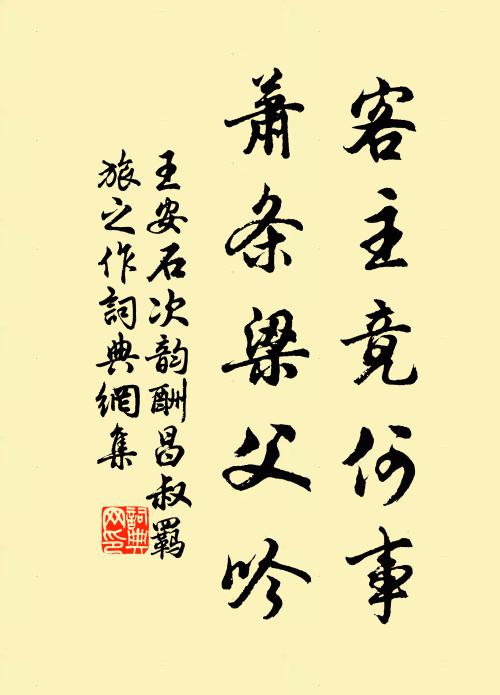 客主竟何事
萧条梁父吟
王安石次韵酬昌叔羁
旅之作詞典網集
詞典
网印